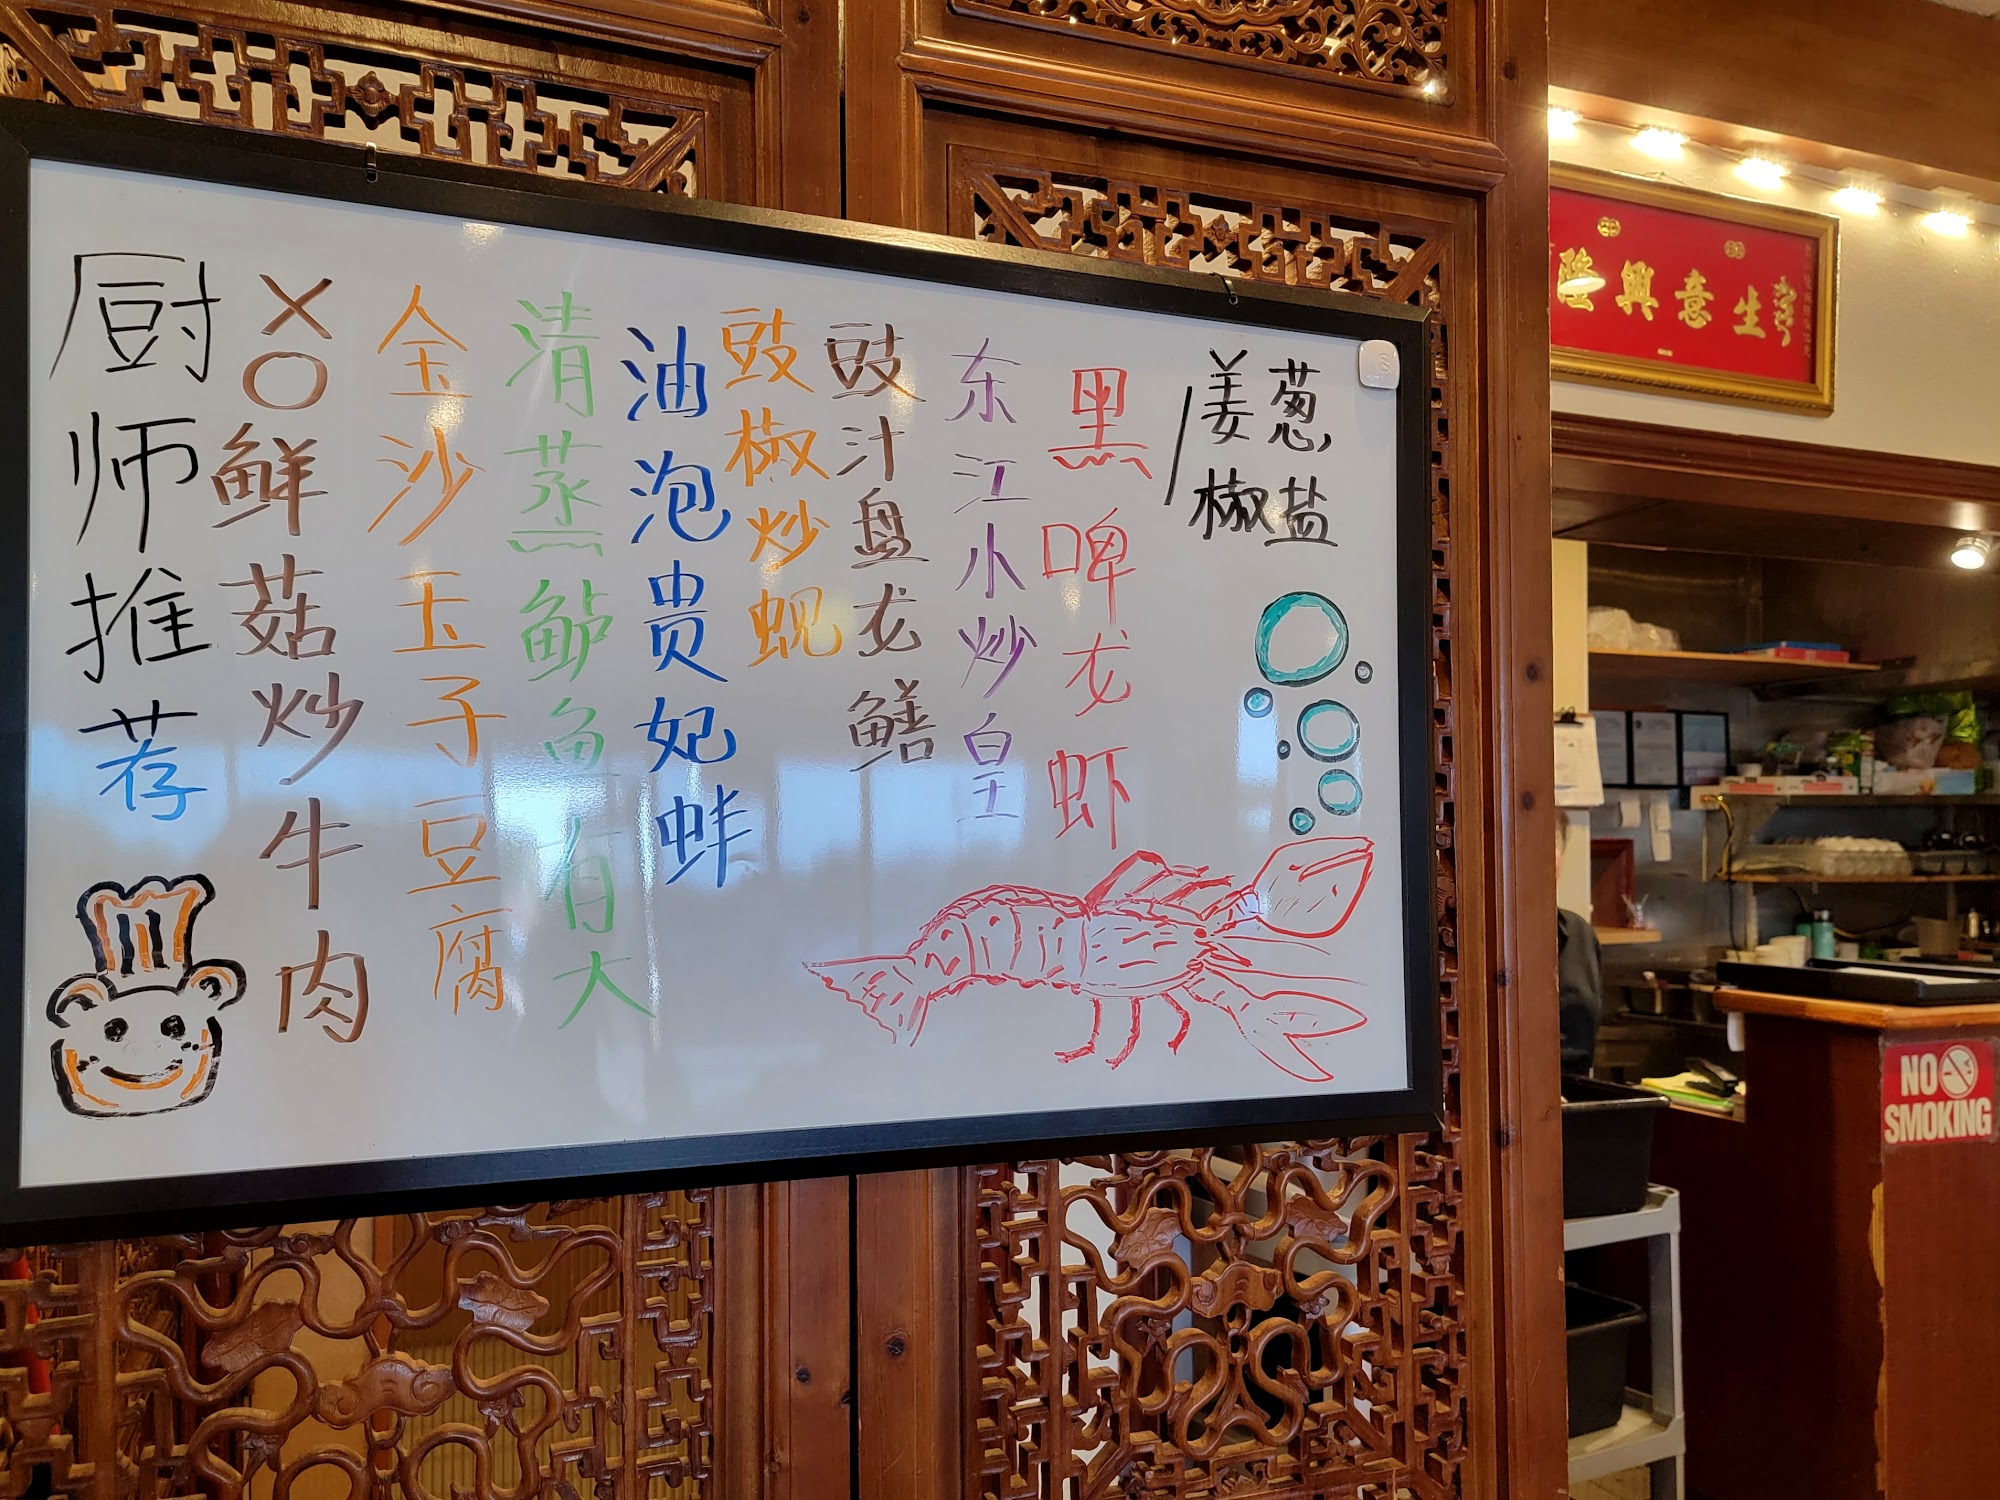 厨师推荐
XO鲜菇炒牛肉
金沙玉子豆腐
清蒸鲈鱼有大
油泡贵妃蚌
豉椒炒蚬
豉汁盘龙鳝
东江小炒皇
黑啤龙虾
/姜葱
椒盐
生意興隆
NO
SMOKING